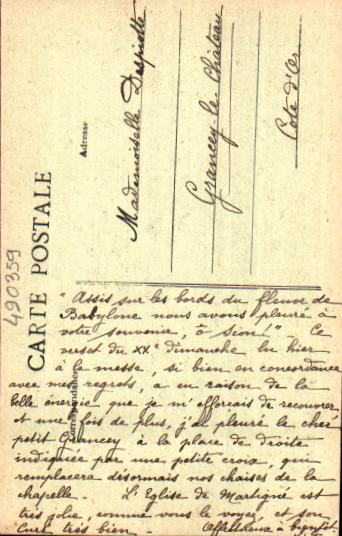 CARTE POSTALE
Correspondance
Adresse
Mademoiselle Despiotte
Grancey-le-Château
Côte d'Or
490359
"Assis sur les bords du fleuve de
Babylone nous avons pleuré à
votre souvenir, ô Sion!" Ce
verset du XXe dimanche lu hier
à la messe, si bien en concordance
avec mes regrets, a eu raison de la
belle énergie que je m'efforçais de recouvrer,
et une fois de plus, j'ai pleuré le cher
petit Grancey à la place de droite
indiquée par une petite croix, qui
remplacera désormais nos chaises de la
chapelle. L'Eglise de Martigné est
très jolie, comme vous le voyez, et son
Curé très bien. Affectueux à bientôt.